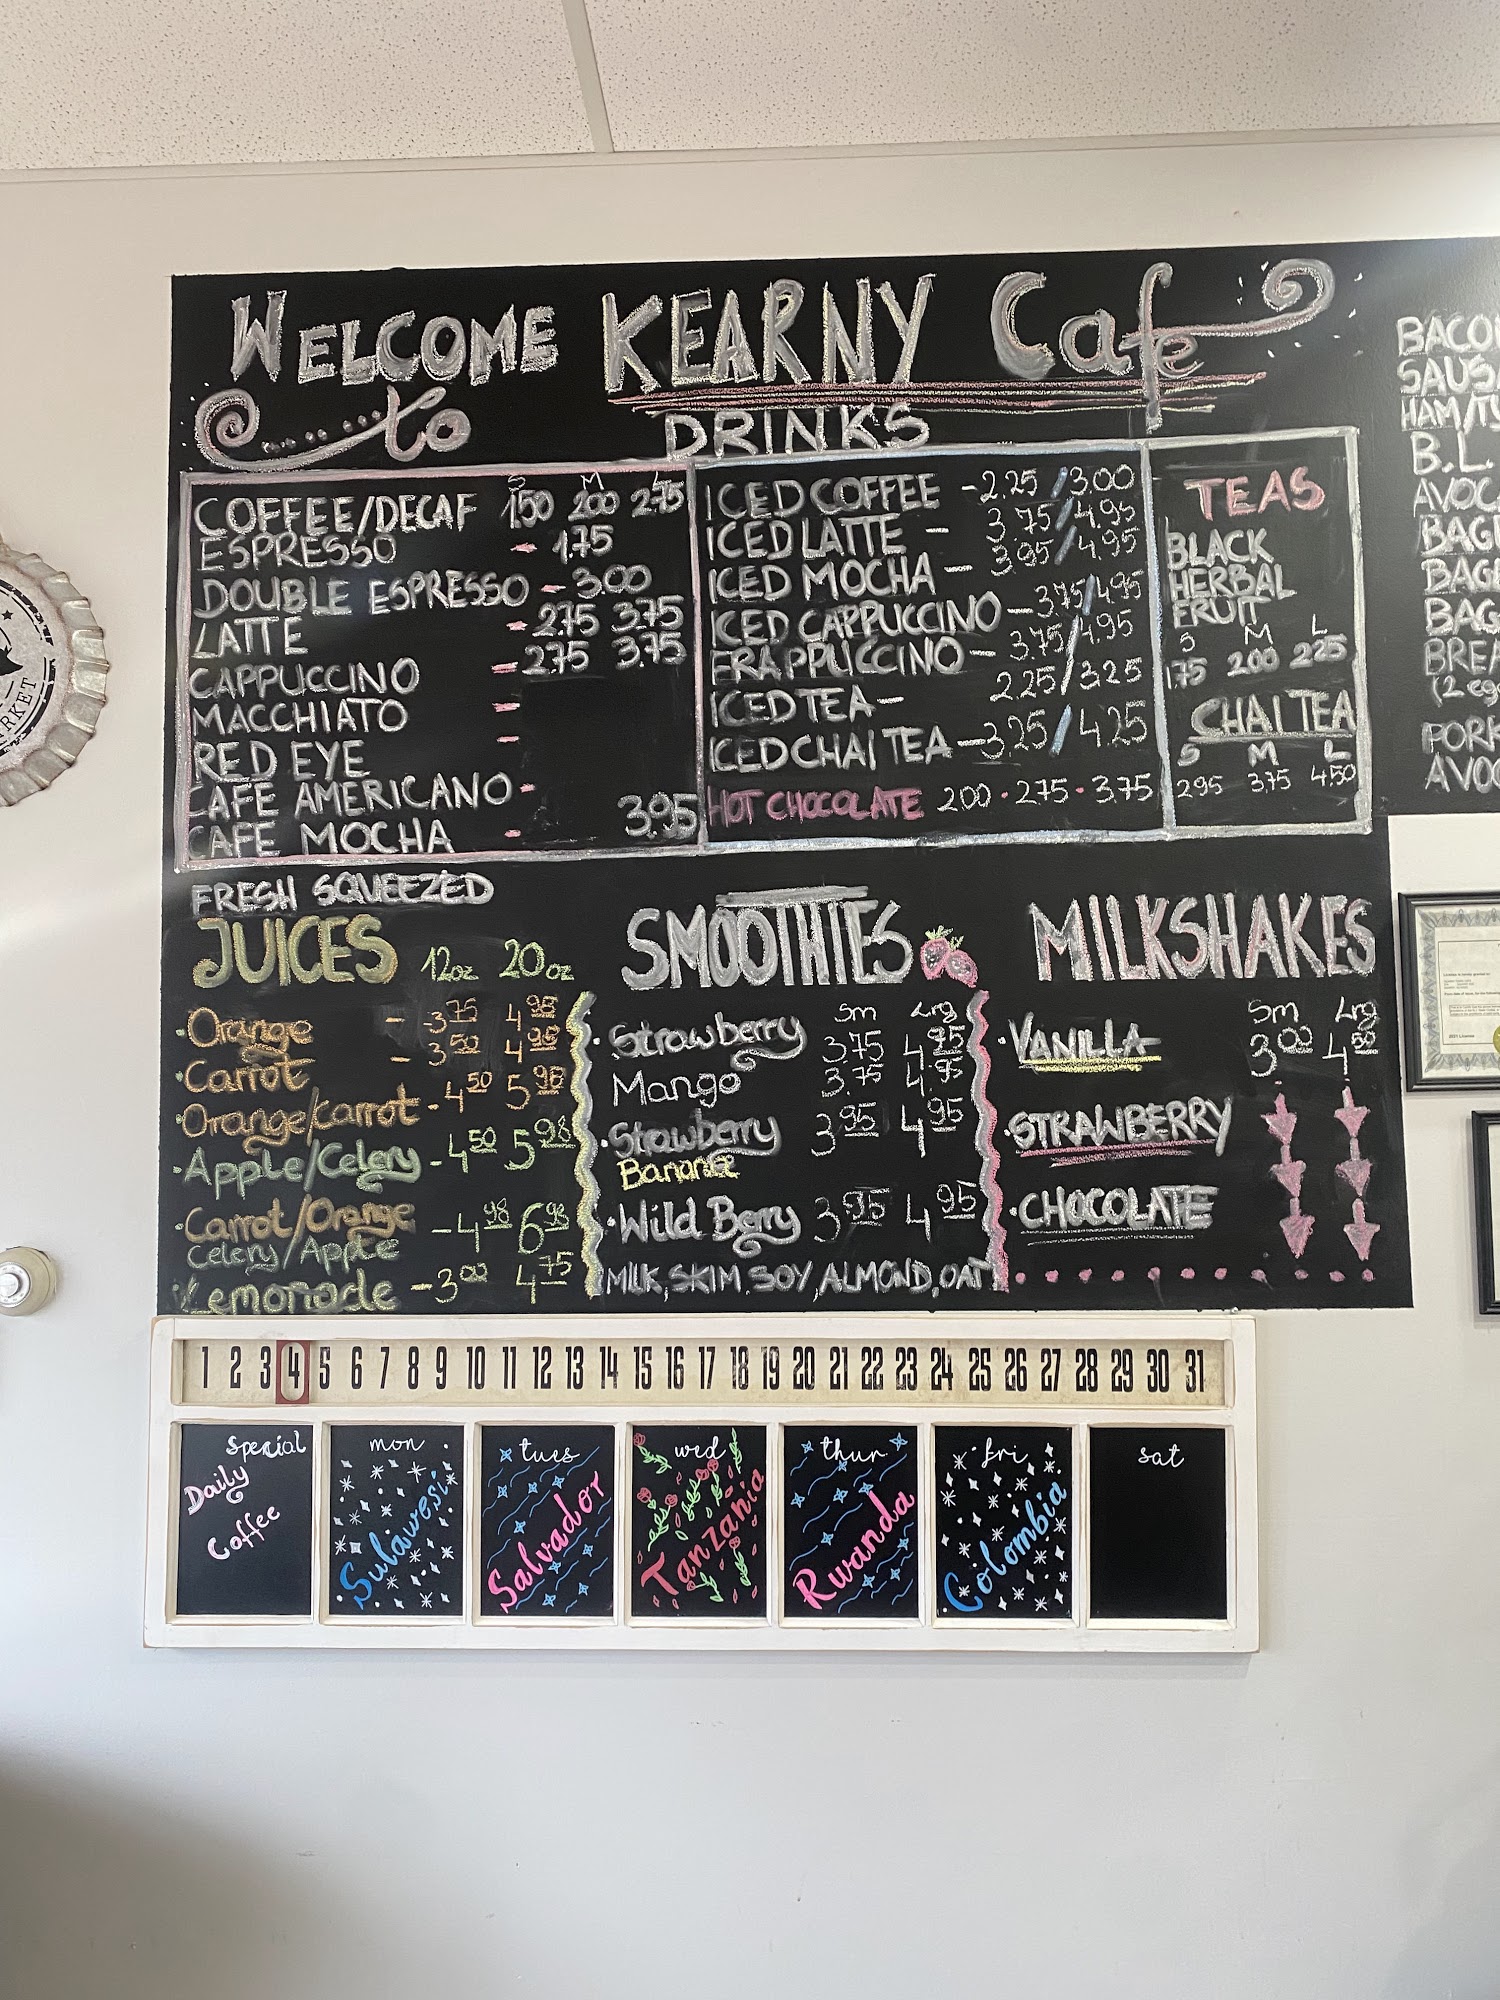 WELCOME KEARNY Cafe
to
DRINKS
S M L
COFFEE/DECAF 150 200 275
ESPRESSO - 1.75
DOUBLE ESPRESSO - 3.00
LATTE - 275 3.75
CAPPUCCINO - 275 3.75
MACCHIATO -
RED EYE -
CAFE AMERICANO -
CAFE MOCHA - 3.95
ICED COFFEE - 2.25 / 3.00
ICED LATTE - 3.75 / 4.95
ICED MOCHA - 3.95 / 4.95
ICED CAPPUCCINO - 3.75 / 4.95
FRAPPUCCINO - 3.75 / 4.95
ICED TEA - 2.25 / 3.25
ICED CHAI TEA - 3.25 / 4.25
HOT CHOCOLATE 200 · 275 · 3.75
TEAS
BLACK
HERBAL
FRUIT
S M L
175 200 225
CHAI TEA
S M L
295 375 450
FRESH SQUEEZED
JUICES 12oz 20oz
· Orange - 3.75 4.98
· Carrot - 3.50 4.98
· Orange/Carrot - 4.50 5.98
· Apple/Celery - 4.50 5.98
· Carrot/Orange
Celery/Apple - 4.98 6.98
Lemonade - 3.00 4.75
SMOOTHIES
Sm Lrg
· Strawberry 3.75 4.95
Mango 3.75 4.95
· Strawberry 3.95 4.95
Banana
· Wild Berry 3.95 4.95
MILK, SKIM, SOY, ALMOND, OAT
MILKSHAKES
Sm Lrg
· VANILLA 3.00 4.50
· STRAWBERRY
· CHOCOLATE
HAM/
B.L
BREA
(2 eg
PORK
1 2 3 4 5 6 7 8 9 10 11 12 13 14 15 16 17 18 19 20 21 22 23 24 25 26 27 28 29 30 31
Special
Daily
Coffee
mon
Sulawesi
tues
Salvador
wed
Tanzania
thur
Rwanda
fri
Colombia
sat